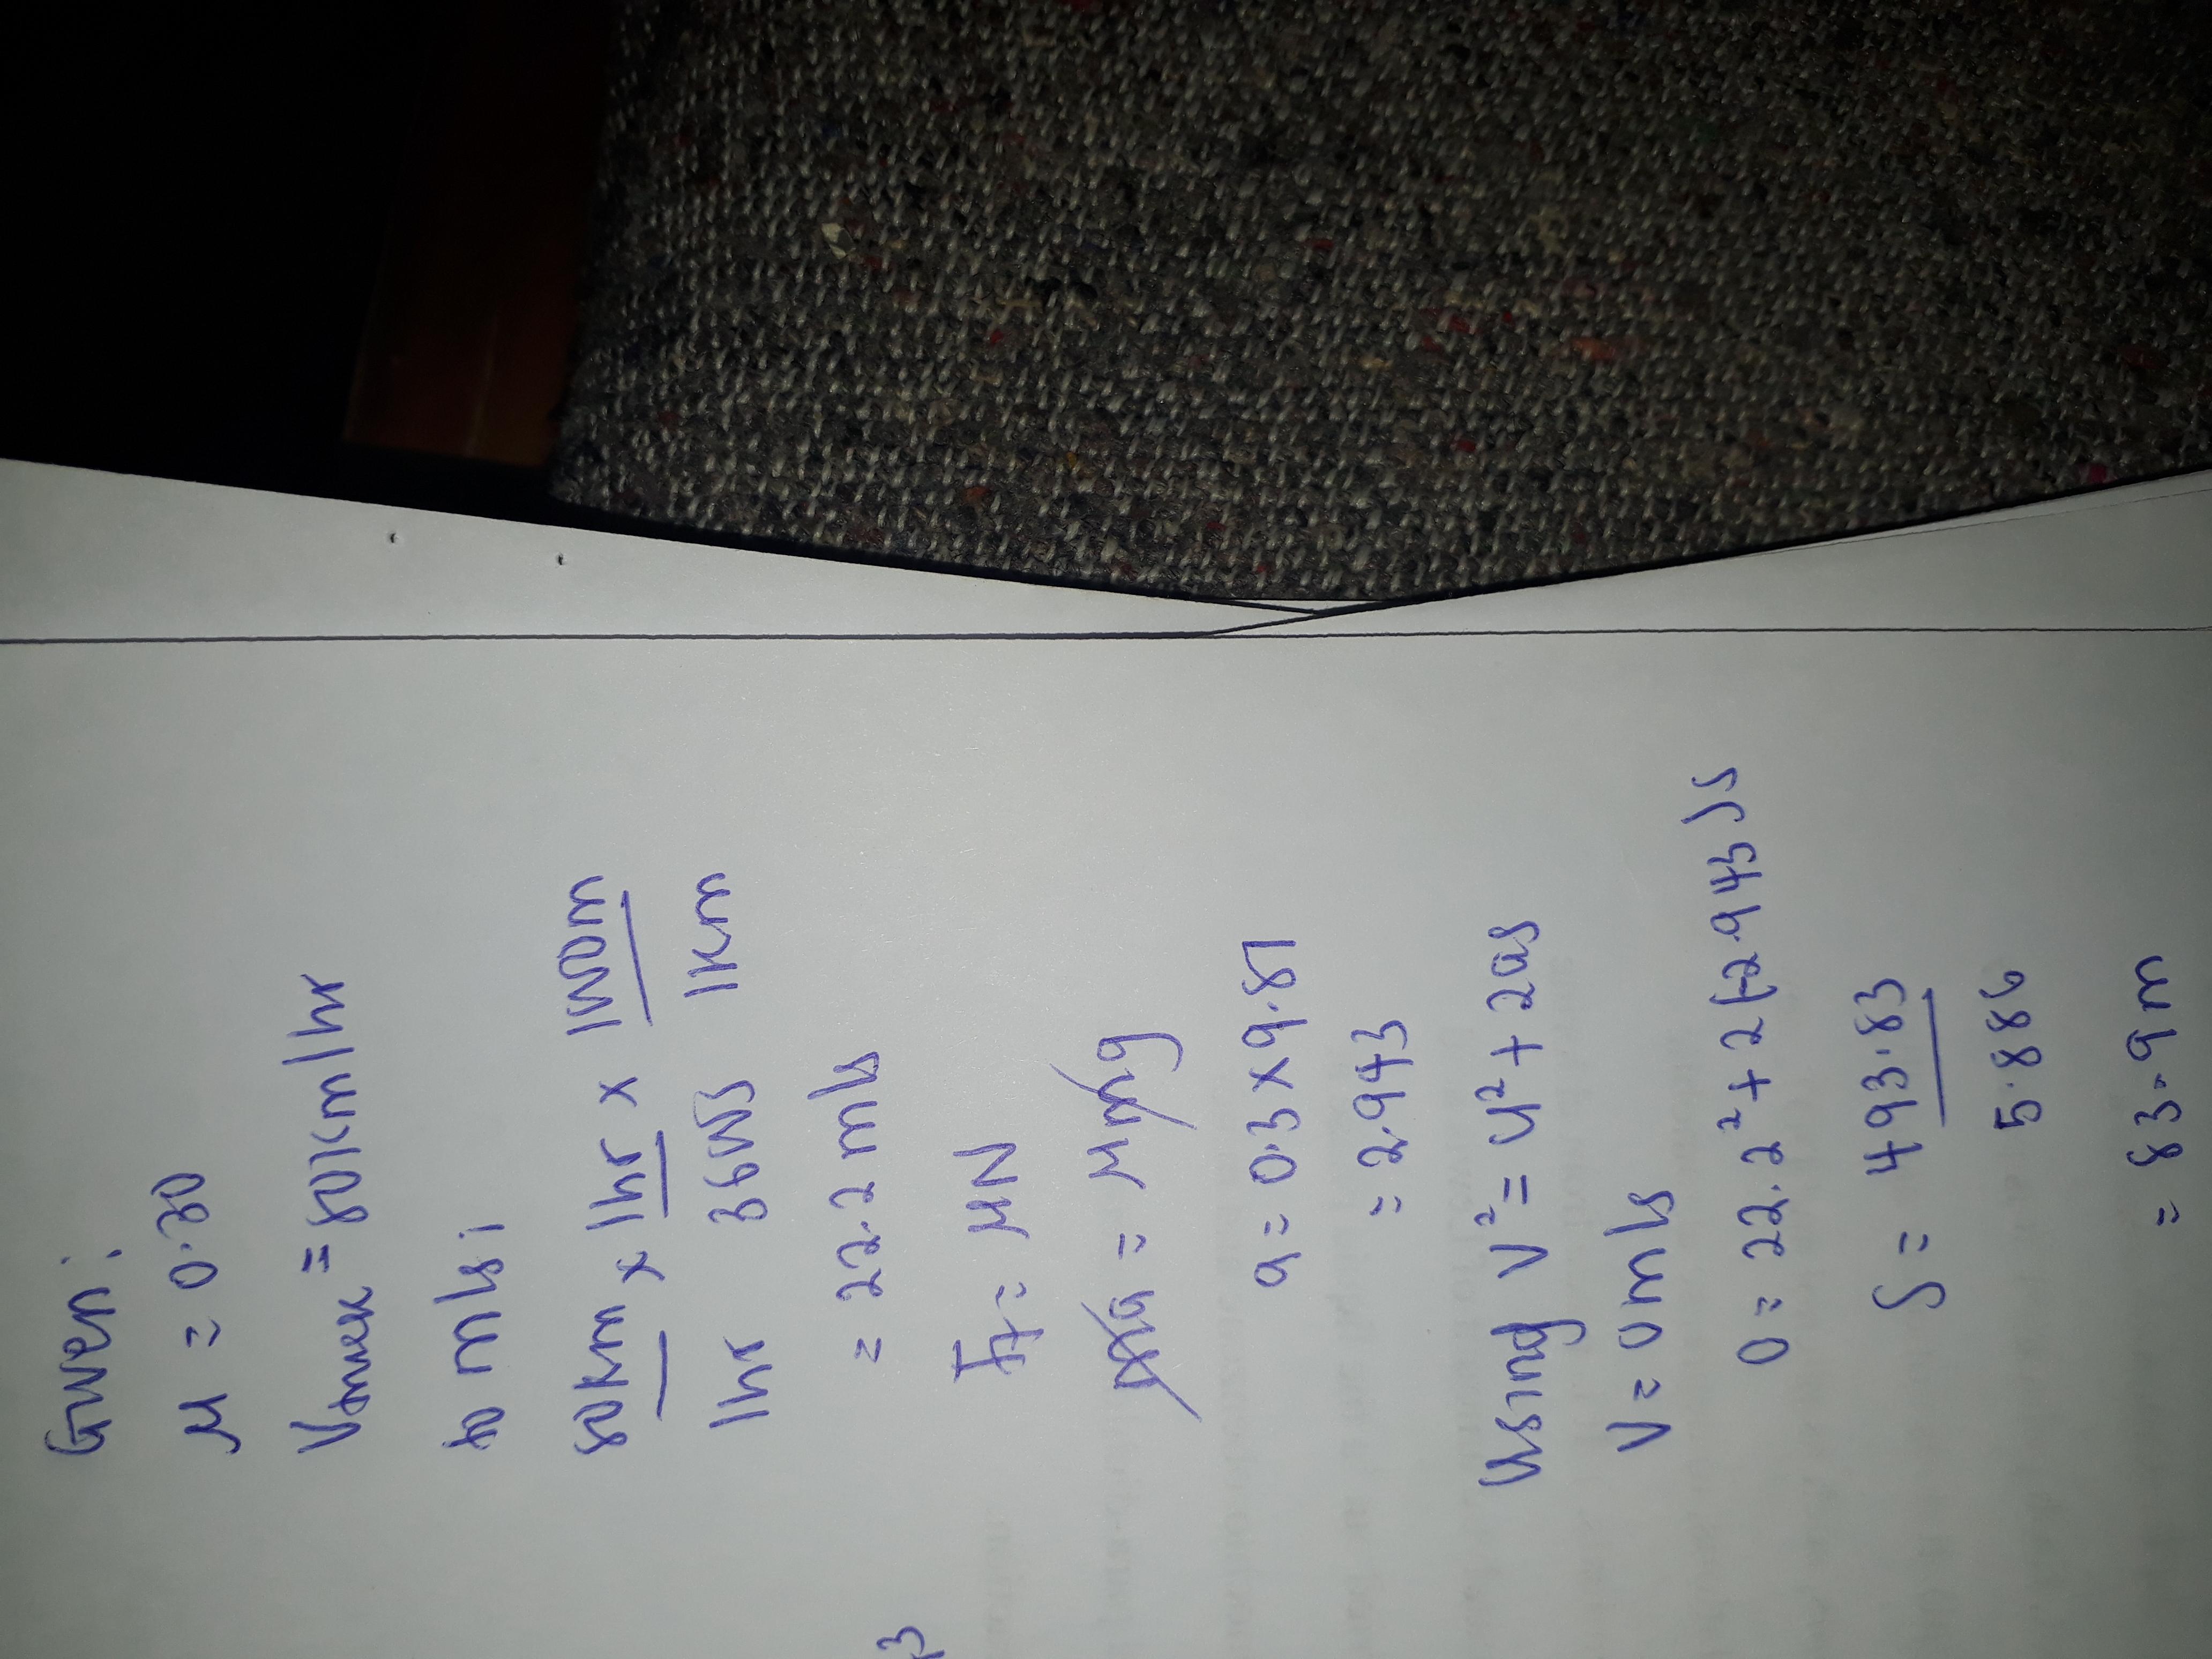 Given:
μ = 0.30
Vmax = 80km/hr
to m/s:
80km/1hr × 1hr/3600s × 1000m/1km
= 22.2 m/s
Ff = μN
ma = μmg
a = 0.3 × 9.81
= 2.943
Using V² = U² + 2as
V = 0m/s
0 = 22.2² + 2(-2.943)s
S = 493.83/5.886
= 83.9m
3